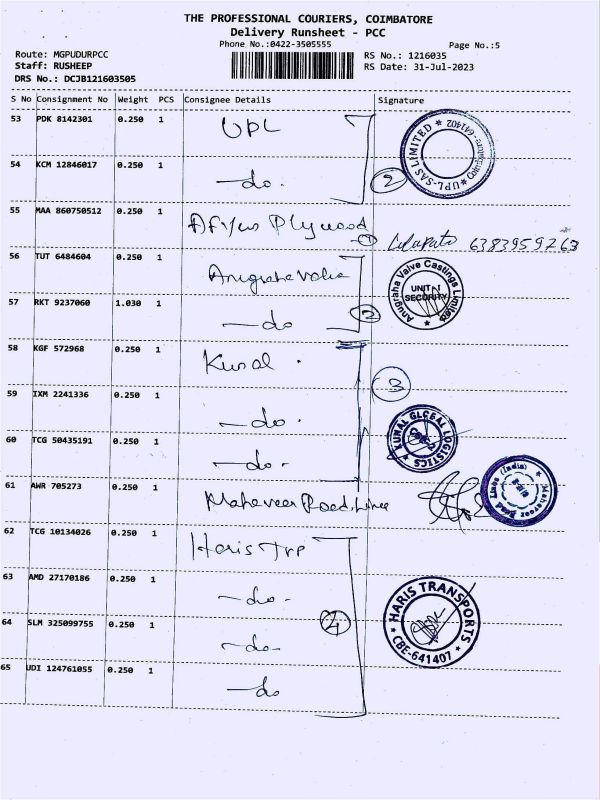 THE PROFESSIONAL COURIERS, COIMBATORE
Delivery Runsheet - PCC
Phone No.:0422-3505555 Page No.:5
Route: MGPUDURPCC RS No.: 1216035
Staff: RUSHEEP RS Date: 31-Jul-2023
DRS No.: DCJB121603505
S No Consignment No Weight PCS Consignee Details Signature
53 PDK 8142301 0.250 1 UPL
UPL-SAS LIMITED * Coimbatore-641402 *
54 KCM 12846017 0.250 1 -do. 2
55 MAA 860750512 0.250 1 Plywood 1 6383959763
56 TUT 6484604 0.250 1 Anugraha Valve
Anugraha Valve Castings Limited * UNIT-I SECURITY
57 RKT 9237060 1.030 1 -do 2
58 KGF 572968 0.250 1 Kunal . 3
59 IXM 2241336 0.250 1 -do.
60 TCG 50435191 0.250 1 -do.
* KUNAL GLOBAL LOGISTICS *
61 AWR 705273 0.250 1 Mahaveer Road Lines
Mahaveer Road Lines (India) *
62 TCG 10134026 0.250 1 Haris Trp
63 AMD 27170186 0.250 1 -do-
64 SLM 325099755 0.250 1 -do- 4
* HARIS TRANSPORTS * CBE-641407
65 UDI 124761055 0.250 1 -do